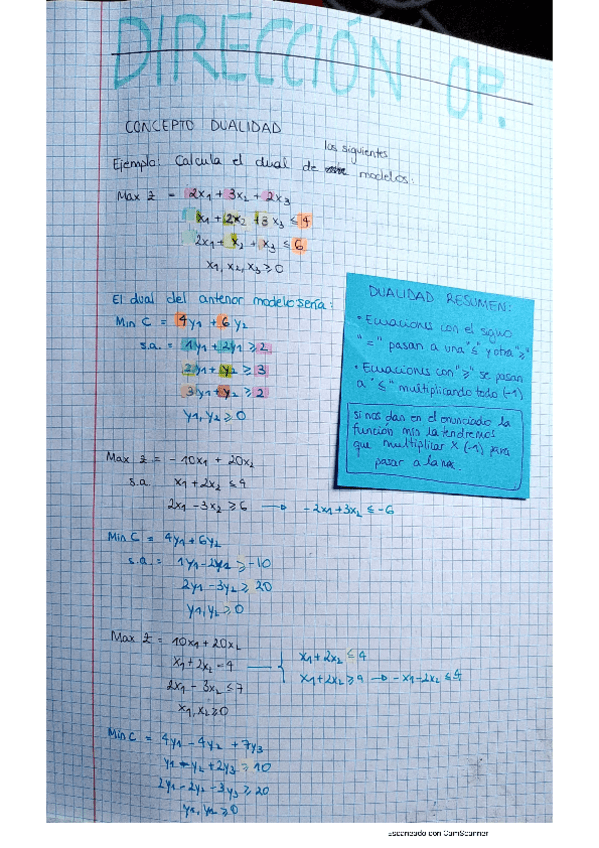 DIRECCIÓN OP.
CONCEPTO DUALIDAD
los siguientes
Ejemplo: Calcula el dual de modelos:
Max z = 2x1 + 3x2 + 2x3
x1 + 2x2 + 3x3 ≤ 4
2x1 + x2 + x3 ≤ 6
x1, x2, x3 ≥ 0
El dual del anterior modelo sería:
Min C = 4y1 + 6y2
s.a. = 1y1 + 2y1 ≥ 2
2y1 + y2 ≥ 3
3y1 + y2 ≥ 2
y1, y2 ≥ 0
DUALIDAD RESUMEN:
• Ecuaciones con el signo
"=" pasan a una "≤" y otra "≥"
• Ecuaciones con "≥" se pasan
a "≤" multiplicando todo (-1)
si nos dan en el enunciado la
función min la tendremos
que multiplicar x (-1) para
pasar a la max.
Max z = -10x1 + 20x2
s.a. x1 + 2x2 ≤ 4
2x1 - 3x2 ≥ 6 → -2x1 + 3x2 ≤ -6
Min C = 4y1 + 6y2
s.a. = 1y1 - 2y2 ≥ -10
2y1 - 3y2 ≥ 20
y1, y2 ≥ 0
Max z = 10x1 + 20x2
x1 + 2x2 = 4
x1 + 2x2 ≤ 4
x1 + 2x2 ≥ 4 → -x1 - 2x2 ≤ 4
2x1 - 3x2 ≤ 7
x1, x2 ≥ 0
Min C = 4y1 - 4y2 + 7y3
y1 - y2 + 2y3 ≥ 10
2y1 - 2y2 - 3y3 ≥ 20
y1, y2 ≥ 0
Escaneado con CamScanner